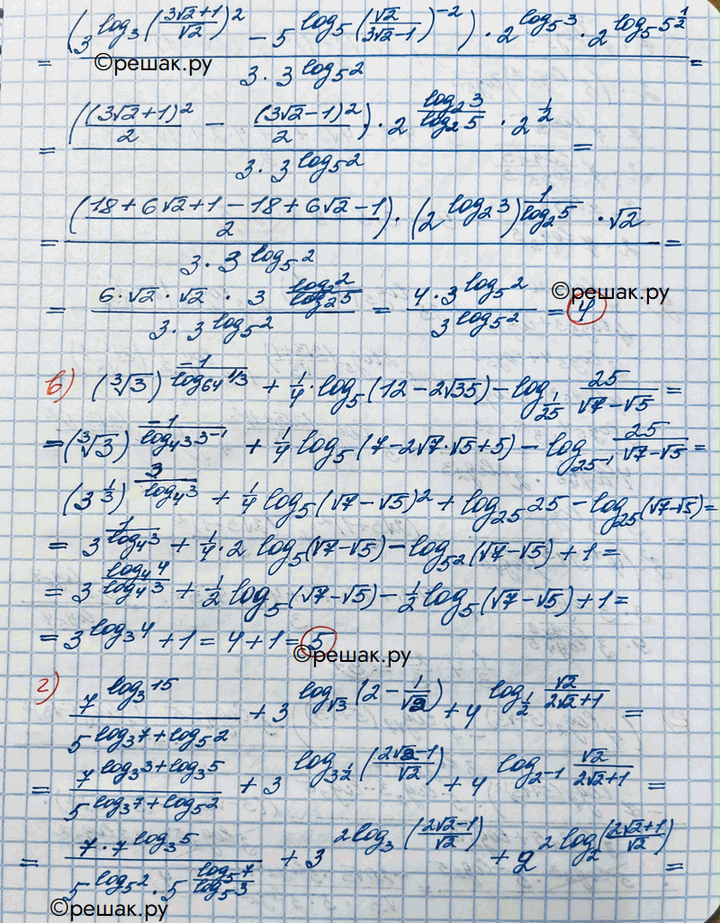 = (3^(log₃((3√2+1)/√2)²) − 5^(log₅(√2/(3√2−1))^(−2))) · 2^(log₅3) · 2^(log₅5^(1/2)) / (3·3^(log₅2)) =
©решак.ру
= ((3√2+1)²/2 − (3√2−1)²/2) · 2^(log₂3/log₂5) · 2^(1/2) / (3·3^(log₅2)) =
= ((18+6√2+1−18+6√2−1)/2) · (2^(log₂3))^(1/log₂5) · √2 / (3·3^(log₅2)) =
= 6·√2·√2 · 3^(log₂2/log₂5) / (3·3^(log₅2)) = 4·3^(log₅2) / 3^(log₅2) = 4
©решак.ру
в) (∛3)^(−1/log₆₄ 1/3) + 1/4·log₅(12−2√35) − log_(1/25) 25/(√7−√5) =
= (∛3)^(−1/log_(4³) 3^(−1)) + 1/4 log₅(7−2√7·√5+5) − log_(25^(−1)) 25/(√7−√5) =
(3^(1/3))^(3/log₄3) + 1/4 log₅(√7−√5)² + log₂₅25 − log₂₅(√7−√5) =
= 3^(1/log₄3) + 1/4·2 log₅(√7−√5) − log_(5²)(√7−√5) + 1 =
= 3^(log₄4/log₄3) + 1/2 log₅(√7−√5) − 1/2 log₅(√7−√5) + 1 =
= 3^(log₃4) + 1 = 4+1 = 5
©решак.ру
г) 7^(log₃15) / 5^(log₃7+log₅2) + 3^(log_(√3)(2−1/√2)) + 4^(log_(1/2) √2/(2√2+1)) =
= 7^(log₃3+log₃5) / 5^(log₃7+log₅2) + 3^(log_(3^(1/2))((2√2−1)/√2)) + 4^(log_(2^(−1)) √2/(2√2+1)) =
= 7·7^(log₃5) / (5^(log₅2)·5^(log₅7/log₅3)) + 3^(2log₃((2√2−1)/√2)) + 2^(2log₂((2√2+1)/√2)) =
©решак.ру